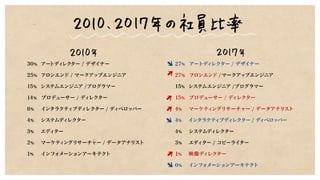 2010、2017年の社員比率
2010年
30% アートディレクター / デザイナー
25% フロンエンド / マークアップエンジニア
15% システムエンジニア /プログラマー
14% プロデューサー / ディレクター
6% インタラクティブディレクター / ディベロッパー
4% システムディレクター
3% エディター
2% マーケティングリサーチャー / データアナリスト
1% インフォメーションアーキテクト
2017年
27% アートディレクター / デザイナー
27% フロンエンド /マークアップエンジニア
15% システムエンジニア /プログラマー
15% プロデューサー / ディレクター
4% マーケティングリサーチャー / データアナリスト
4% インタラクティブディレクター / ディベロッパー
4% システムディレクター
3% エディター / コピーライター
1% 映像ディレクター
0% インフォメーションアーキテクト